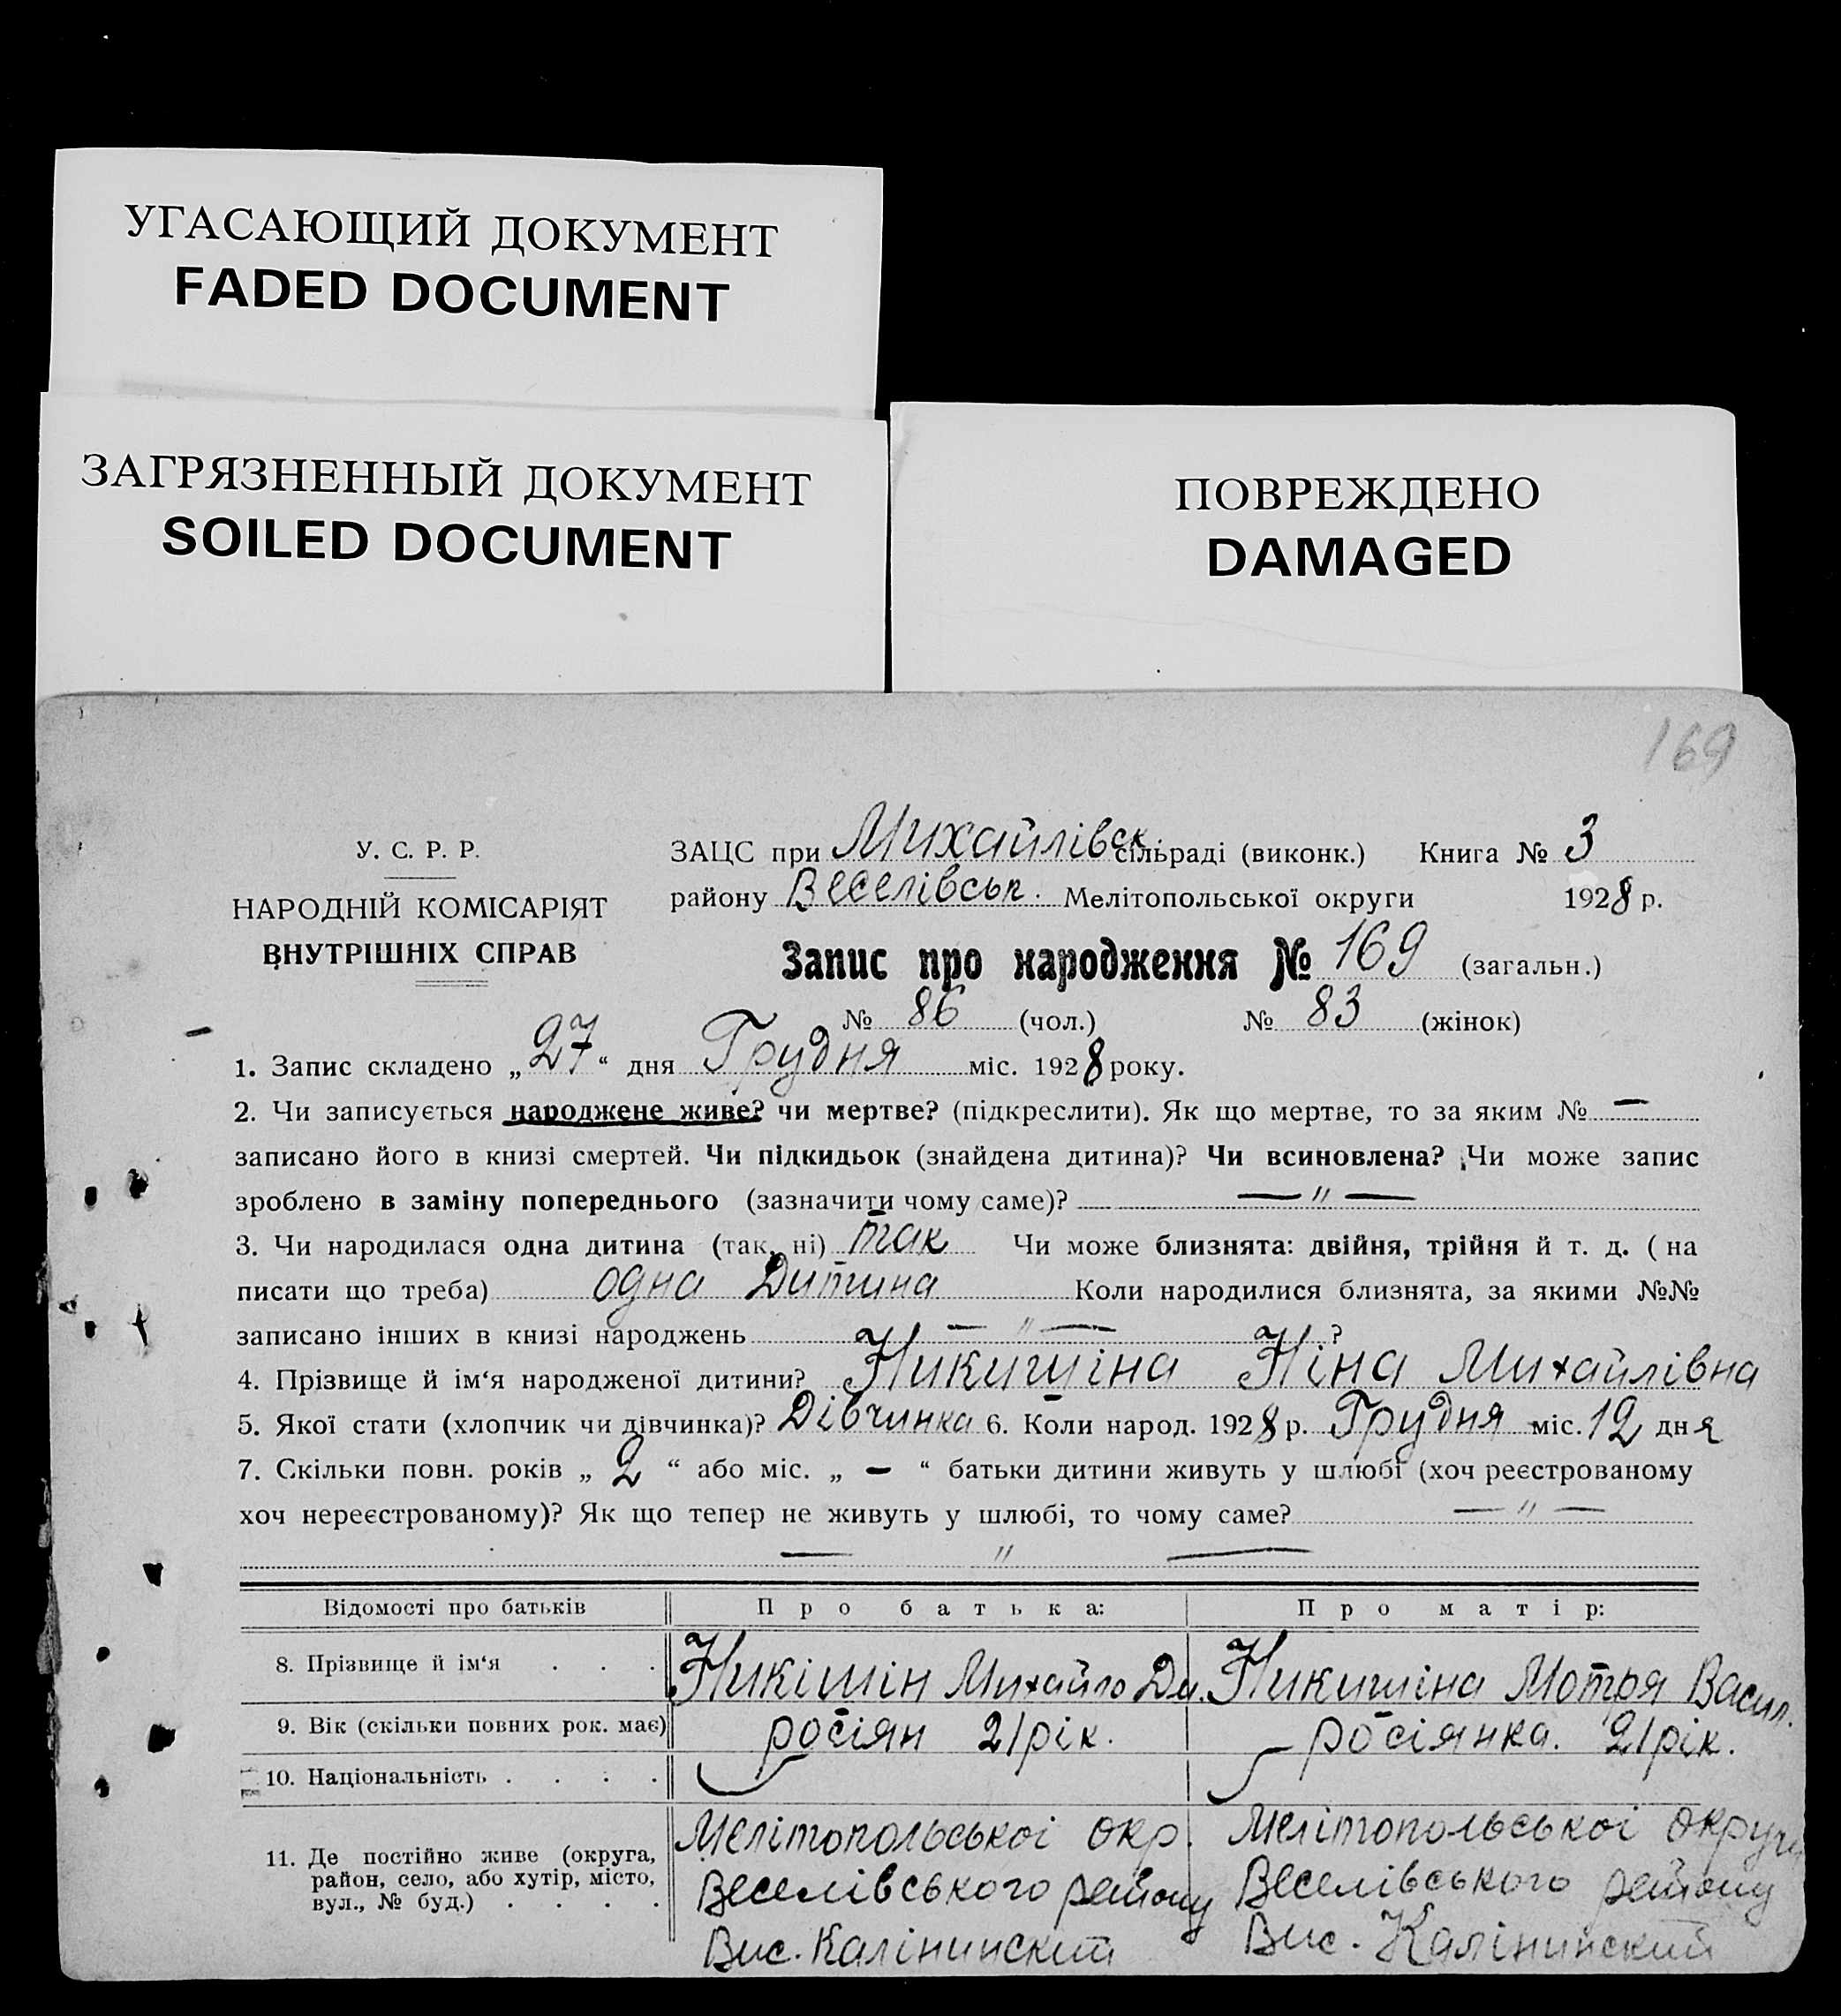 УГАСАЮЩИЙ ДОКУМЕНТ
FADED DOCUMENT
ЗАГРЯЗНЕННЫЙ ДОКУМЕНТ
SOILED DOCUMENT
ПОВРЕЖДЕНО
DAMAGED
169
У. С. Р. Р.
НАРОДНІЙ КОМІСАРІЯТ
ВНУТРІШНІХ СПРАВ
ЗАЦС при Михайлівск. сільраді (виконк.) Книга № 3
району Веселівськ. Мелітопольської округи 1928 р.
Запис про народження № 169 (загальн.)
№ 86 (чол.) № 83 (жінок)
1. Запис складено „27“ дня Грудня міс. 1928 року.
2. Чи записується народжене живе? чи мертве? (підкреслити). Як що мертве, то за яким № —
записано його в книзі смертей. Чи підкидьок (знайдена дитина)? Чи всиновлена? Чи може запис
зроблено в заміну попереднього (зазначити чому саме)? — " —
3. Чи народилася одна дитина (так, ні) так Чи може близнята: двійня, трійня й т. д. ( на
писати що треба) одна Дитина Коли народилися близнята, за якими №№
записано інших в книзі народжень — " — ?
4. Прізвище й ім‘я народженої дитини? Никишіна Ніна Михайлівна
5. Якої стати (хлопчик чи дівчинка)? Дівчинка 6. Коли народ. 1928 р. Грудня міс. 12 дня
7. Скільки повн. років „ 2 “ або міс. „ — “ батьки дитини живуть у шлюбі (хоч реєстрованому
хоч нереєстрованому)? Як що тепер не живуть у шлюбі, то чому саме? — " —
— " —
Відомості про батьків Про батька: Про матір:
8. Прізвище й ім‘я . . . Никішін Михайло Ди. Никишіна Мотря Васил.
9. Вік (скільки повних рок. має) росіян 21 рік. росіянка. 21 рік.
10. Національність . . . .
11. Де постійно живе (округа,
район, село, або хутір, місто,
вул., № буд.) . . . .
Мелітопольської окр.
Веселівського району
Вис. Калінинский
Мелітопольської округи
Веселівського району
Вис. Калінинский